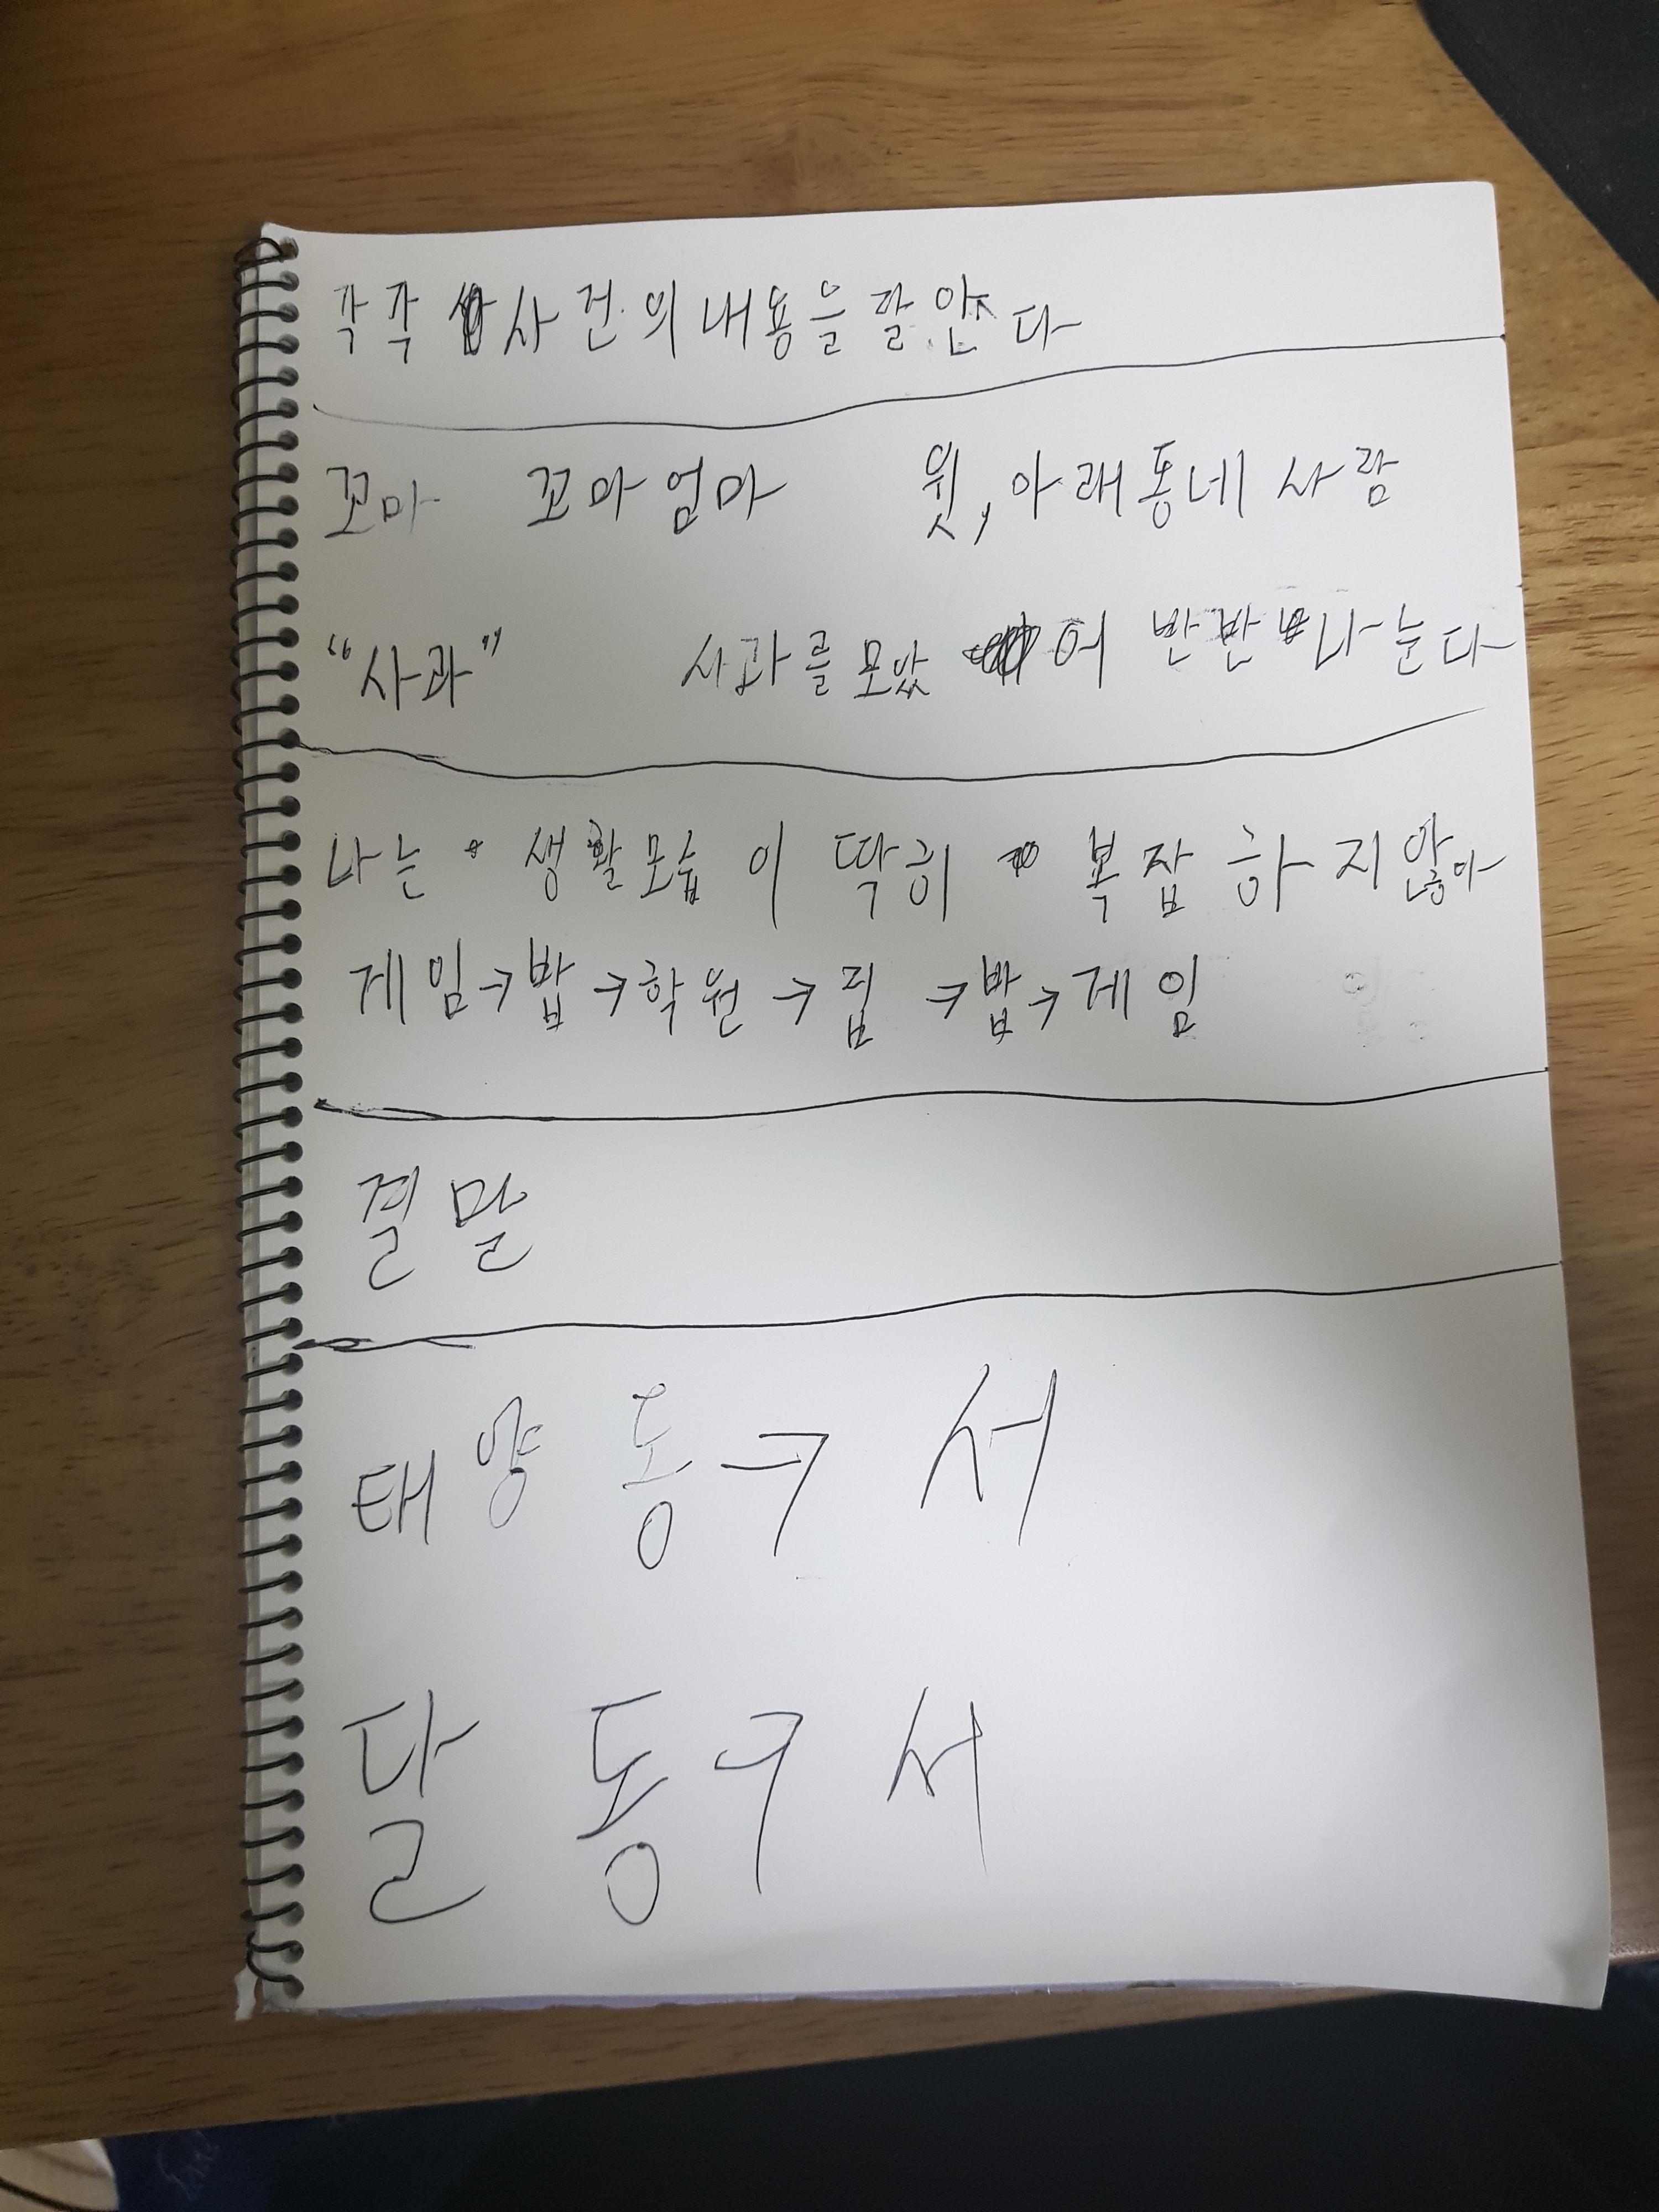 각각 사건의 내용을 잘 안다
꼬마 꼬마엄마 윗, 아래동네 사람
“사과” 사과를 모았어 반반 나눈다
나는 생활모습이 딱히 복잡하지않아
게임→밥→학원→집→밥→게임
결말
태양 동→서
달 동→서